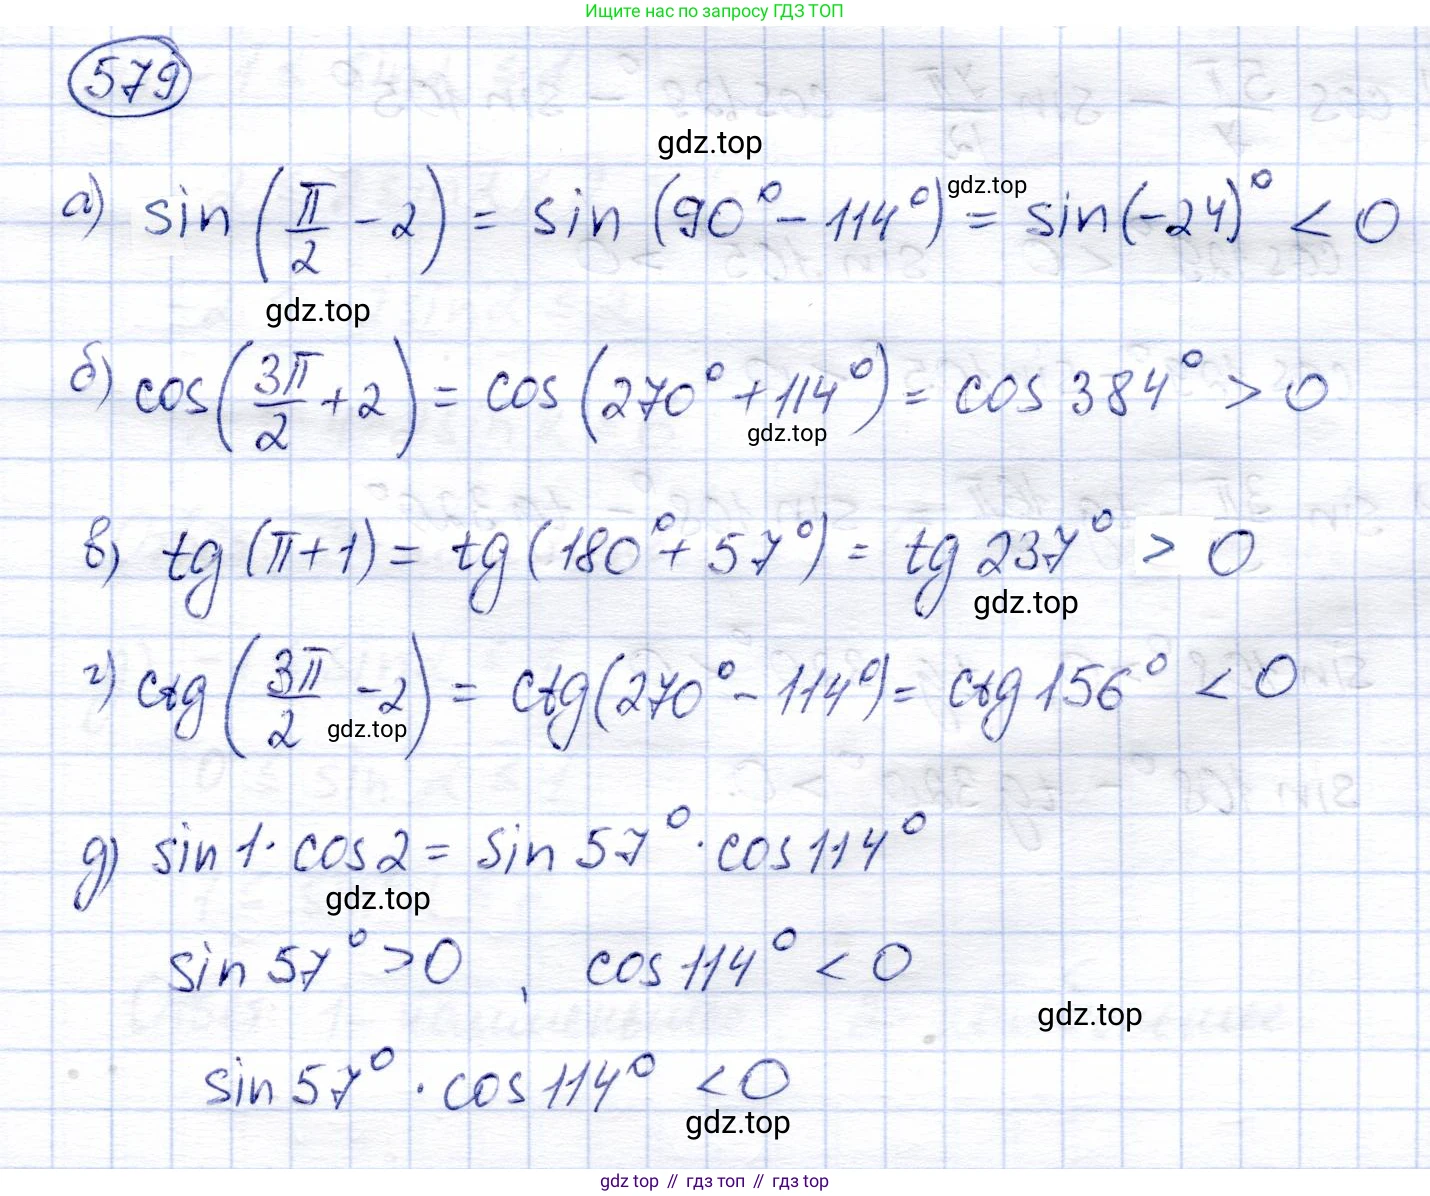 Ищите нас по запросу ГДЗ ТОП
579
gdz.top
а) sin(π/2 − 2) = sin(90° − 114°) = sin(−24)° < 0
gdz.top
gdz.top
б) cos(3π/2 + 2) = cos(270° + 114°) = cos 384° > 0
gdz.top
в) tg(π + 1) = tg(180° + 57°) = tg 237° > 0
gdz.top
г) ctg(3π/2 − 2) = ctg(270° − 114°) = ctg 156° < 0
gdz.top
д) sin 1 · cos 2 = sin 57° · cos 114°
gdz.top
sin 57° > 0 , cos 114° < 0
gdz.top
sin 57° · cos 114° < 0
gdz.top
gdz top // гдз топ // гдз top